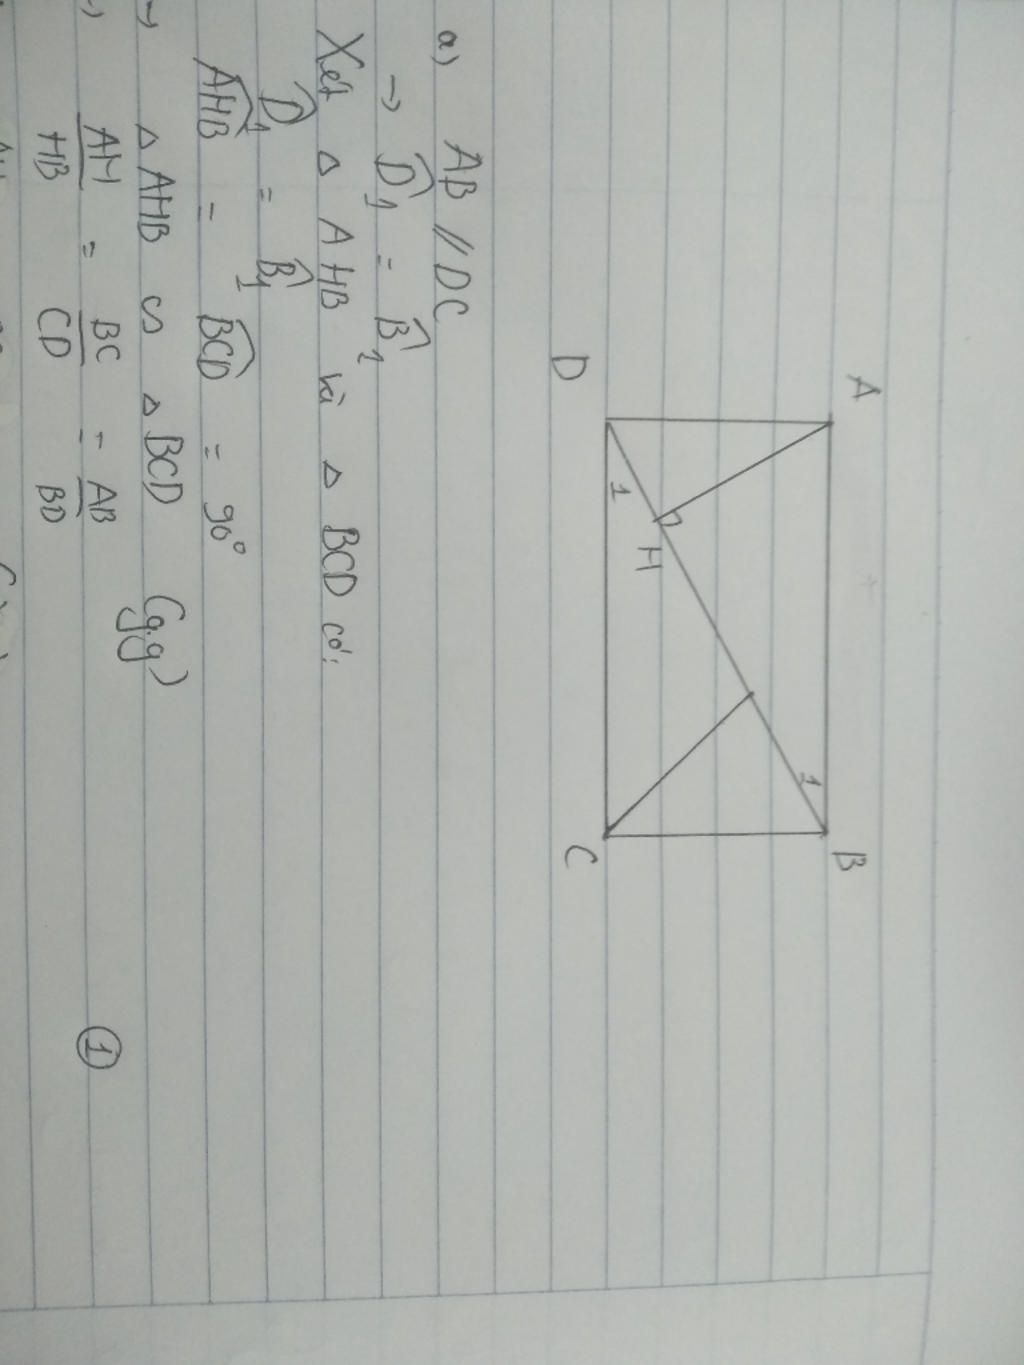 A
B
1
H
1
D
C
a) AB // DC
→ D̂₁ = B̂₁
Xét Δ AHB và Δ BCD có:
D̂₁ = B̂₁
AHB = BCD = 90°
→ Δ AHB ∽ Δ BCD (g.g)
→ AH/HB = BC/CD = AB/BD ①